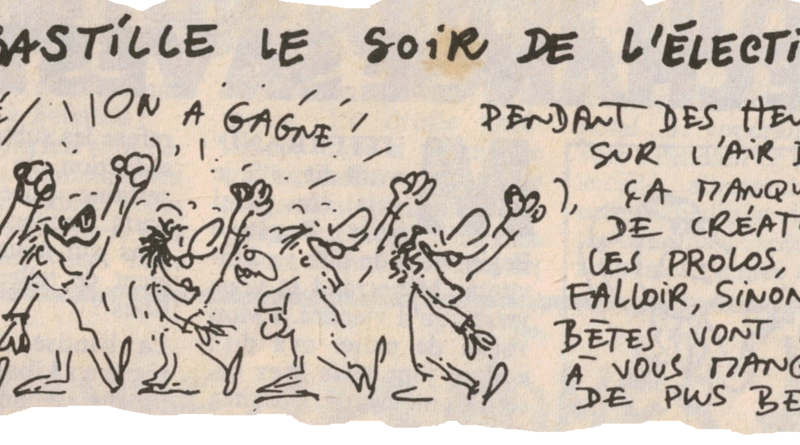 BASTILLE LE SOIR DE L'ÉLECTI
ON A GAGNÉ
PENDANT DES HEU
SUR L'AIR D
ÇA MANQU
DE CRÉAT
LES PROLOS,
FALLOIR, SINON
BÊTES VONT
À VOUS MANG
DE PLUS BE